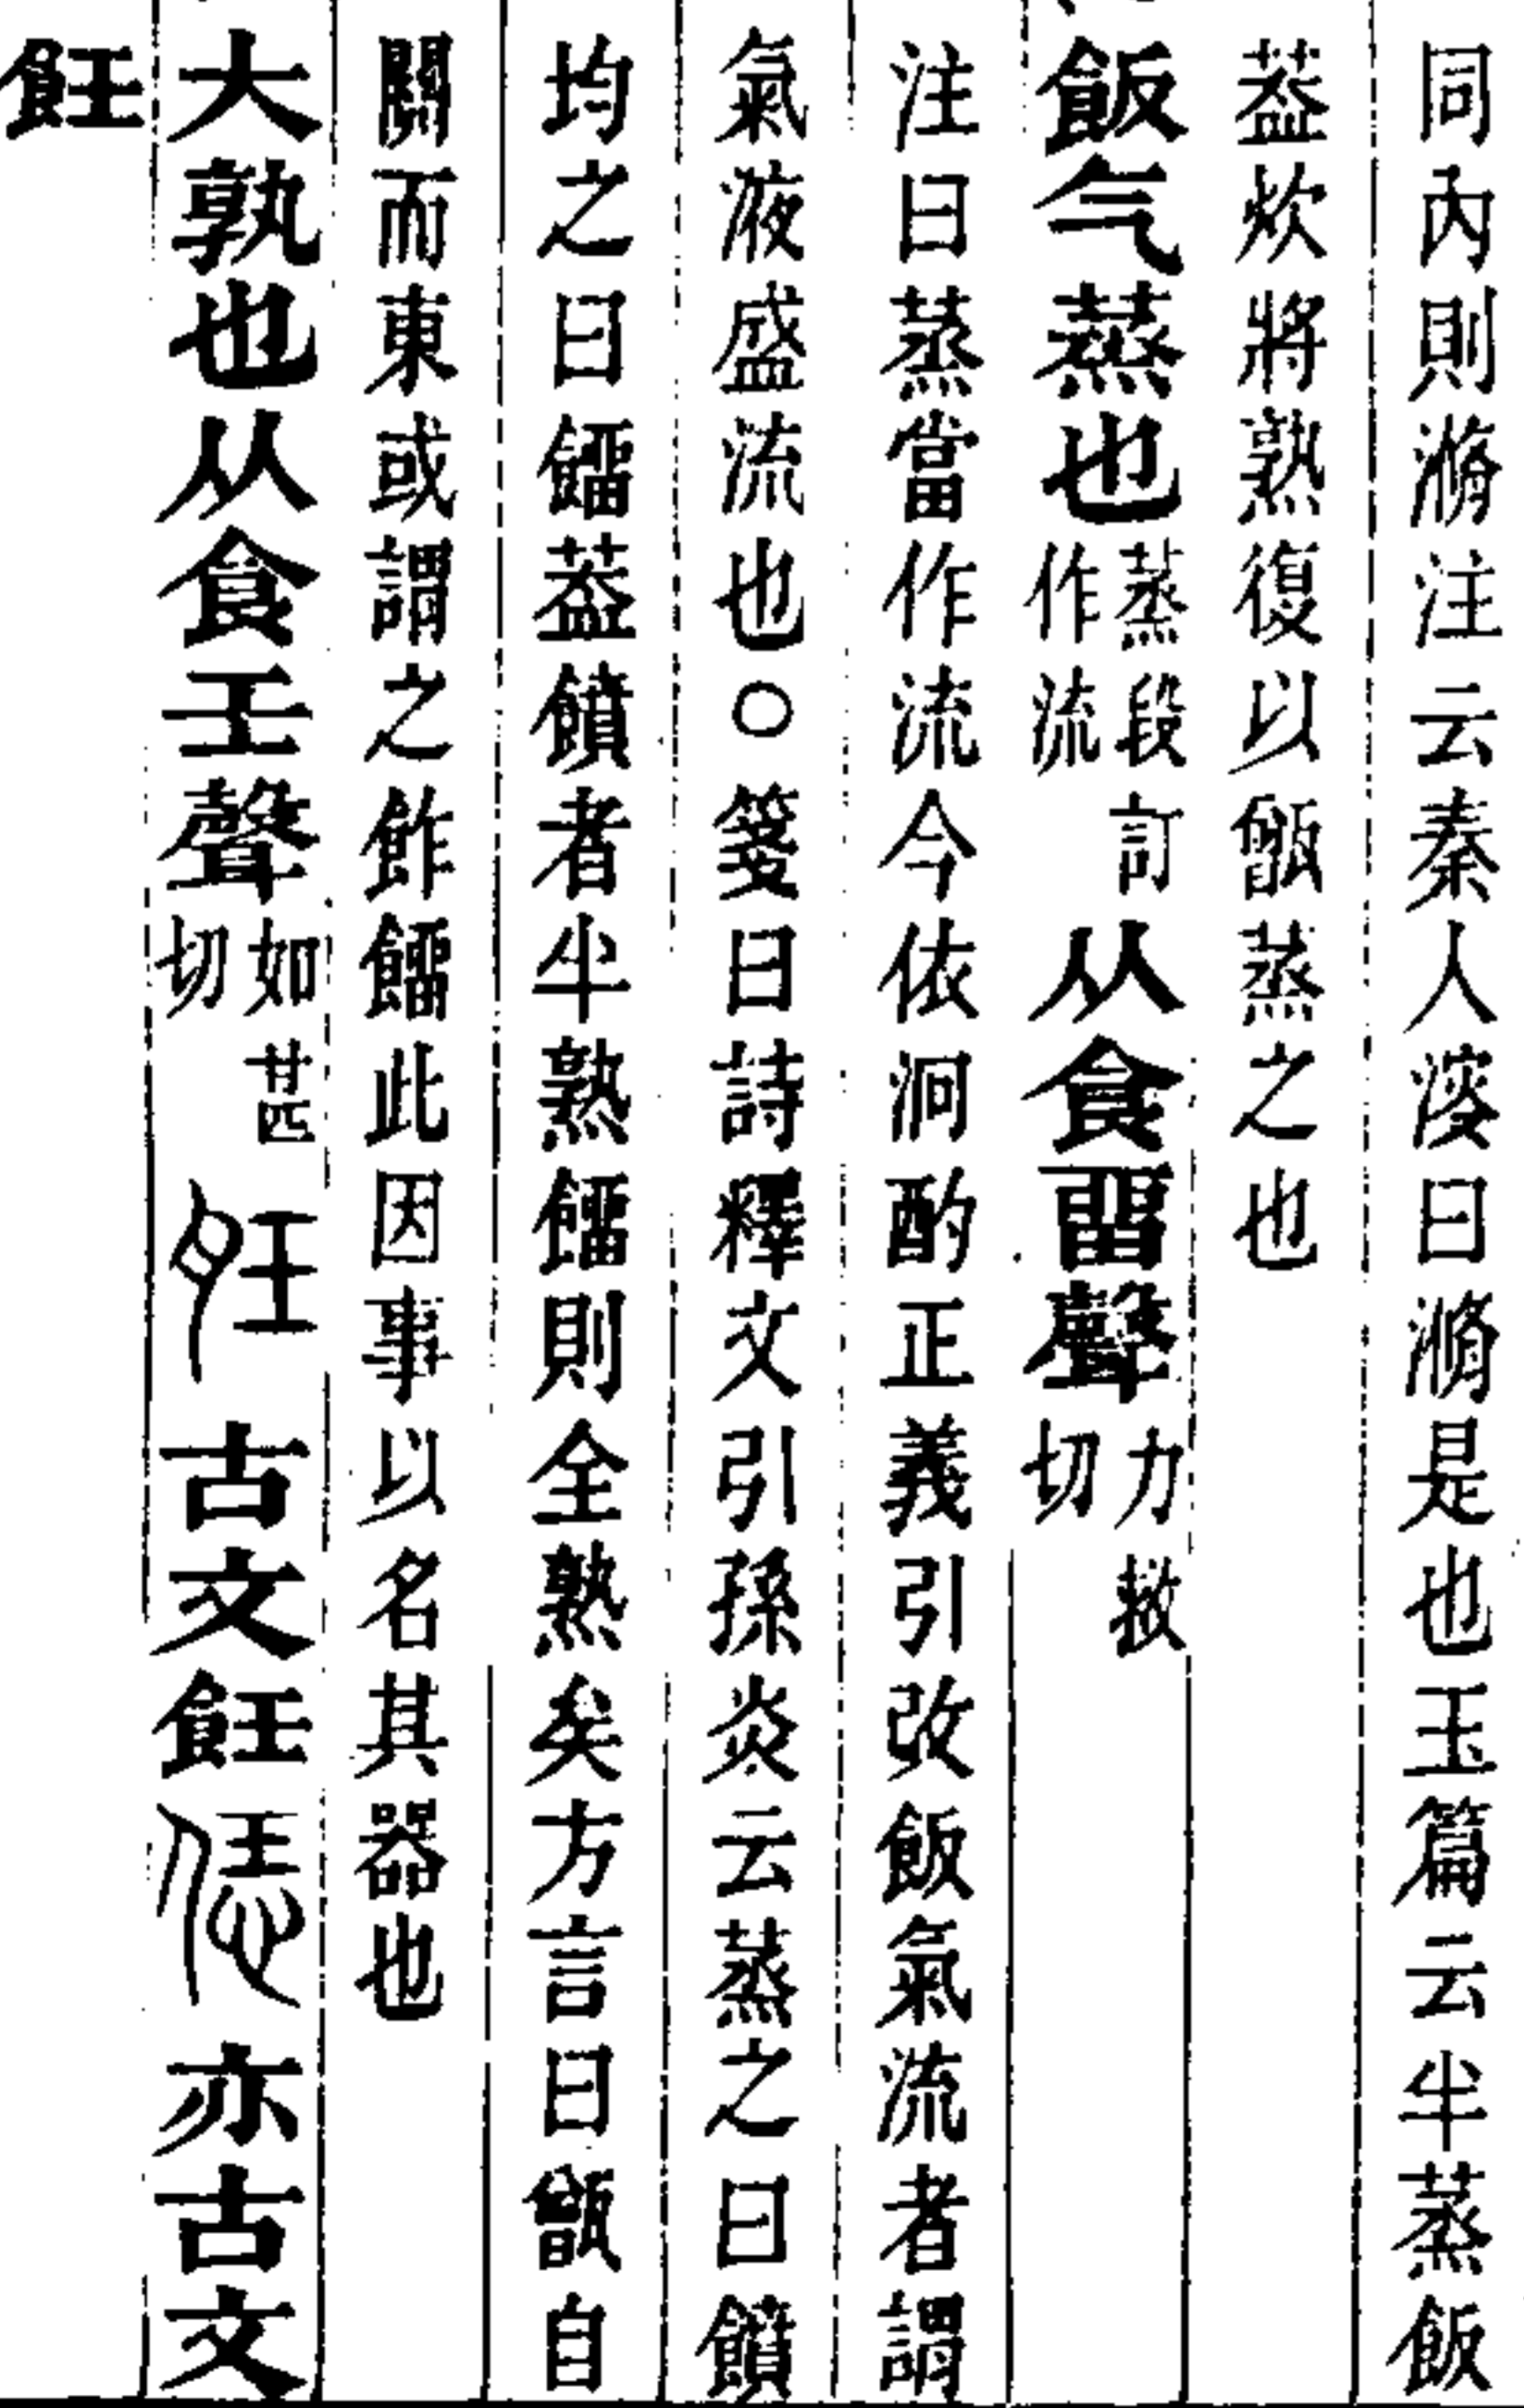 同內則滫注云秦人溲曰滫是也玉篇云半蒸飯
葢炊將熟復以甑蒸之也
飯气蒸也蒸段訂作流从食畱聲力救切
注曰蒸當作流今依泂酌正義引改飯氣流者謂
氣液盛流也○箋曰詩釋文引孫炎云蒸之曰饙
均之曰餾葢饙者半熟餾則全熟矣方言曰甑自
關而東或謂之飵餾此因事以名其器也
大孰也从食壬聲如甚切 𩚏 古文飪 恁 亦古文
飪